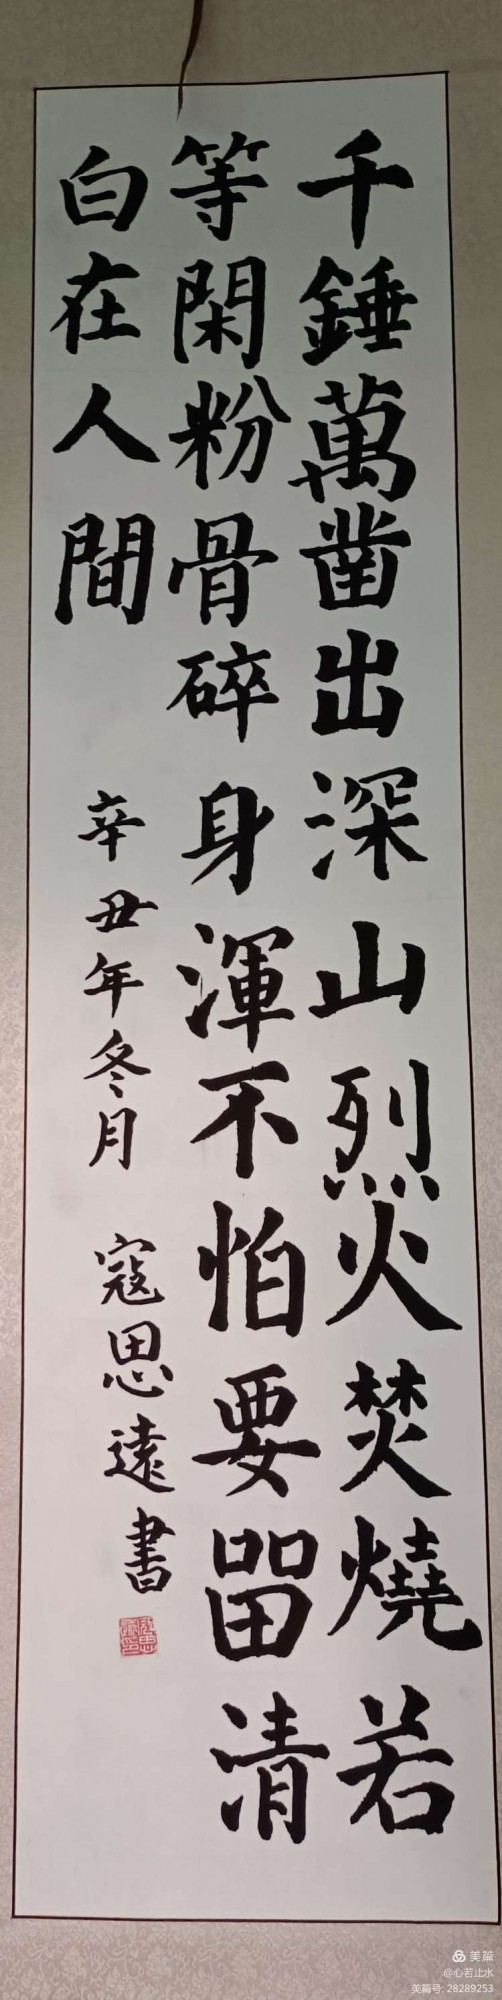 千錘萬凿出深山烈火焚燒若
等閑粉骨碎身渾不怕要畱清
白在人間
辛丑年冬月 寇思遠書
美篇
@心若止水
美篇号: 28289253